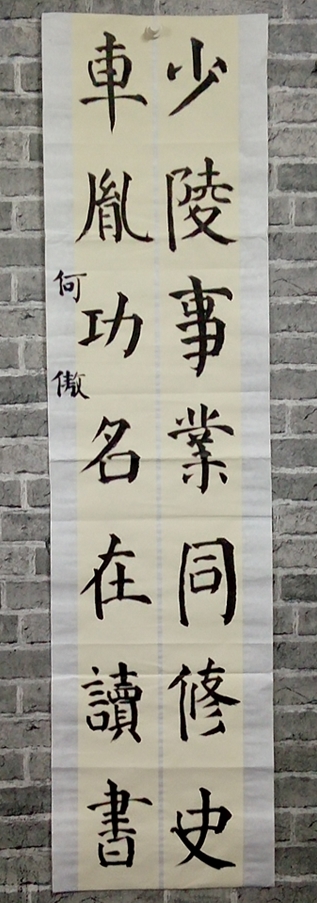 少陵事業同修史
車胤功名在讀書
何傲